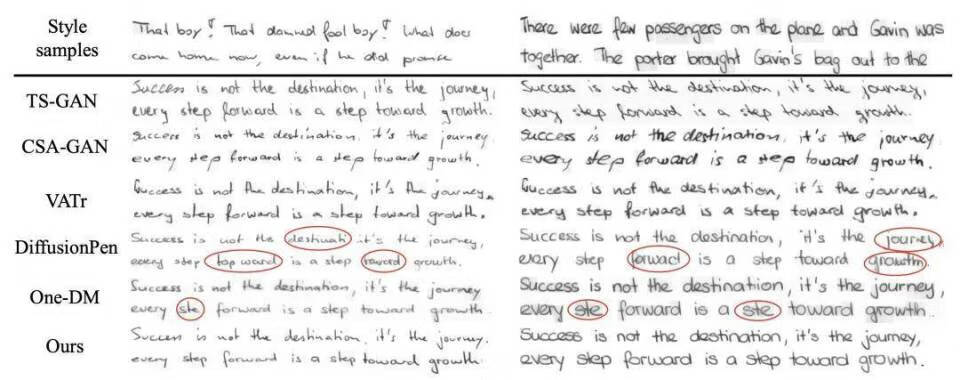 Style samples
That boy! That damned fool boy! What does
come home now, even if he did promise
There were few passengers on the plane and Gavin was
together. The porter brought Gavin's bag out to the
TS-GAN
Success is not the destination, it's the journey,
every step forward is a step toward growth.
Success is not the destination, it's the journey,
every step forward is a step toward growth.
CSA-GAN
Success is not the destination, it's the journey.
every step forward is a step toward growth.
Success is not the destination, it's the journey.
every step forward is a step toward growth.
VATr
Success is not the destination, it's the journey.
every step forward is a step toward growth.
Success is not the destination, it's the journey.
every step forward is a step toward growth.
DiffusionPen
Success is not the destinati it's the journey,
every step top ward is a step roward growth.
Success is not the destination, it's the journey
every step forwacl is a step toward growtth
One-DM
Success is not the destination, it's the journey
every ste forward is a step toward growth.
Success is not the destination, it's the journey,
every ste forward is a ste toward growth.
Ours
Success is not the destination, it's the journey.
every step forward is a step toward growth.
Success is not the destination, it's the journey,
every step forward is a step toward growth.